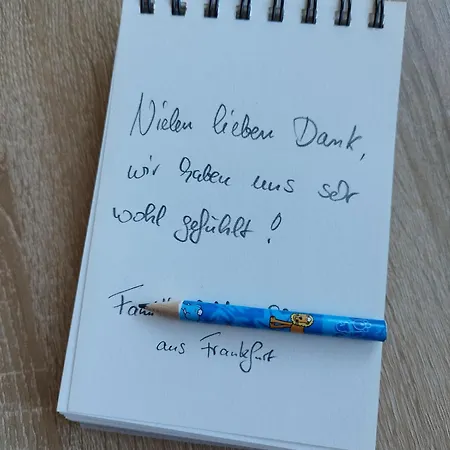 Vielen lieben Dank,
wir haben uns sehr
wohl gefühlt!
aus Frankfurt